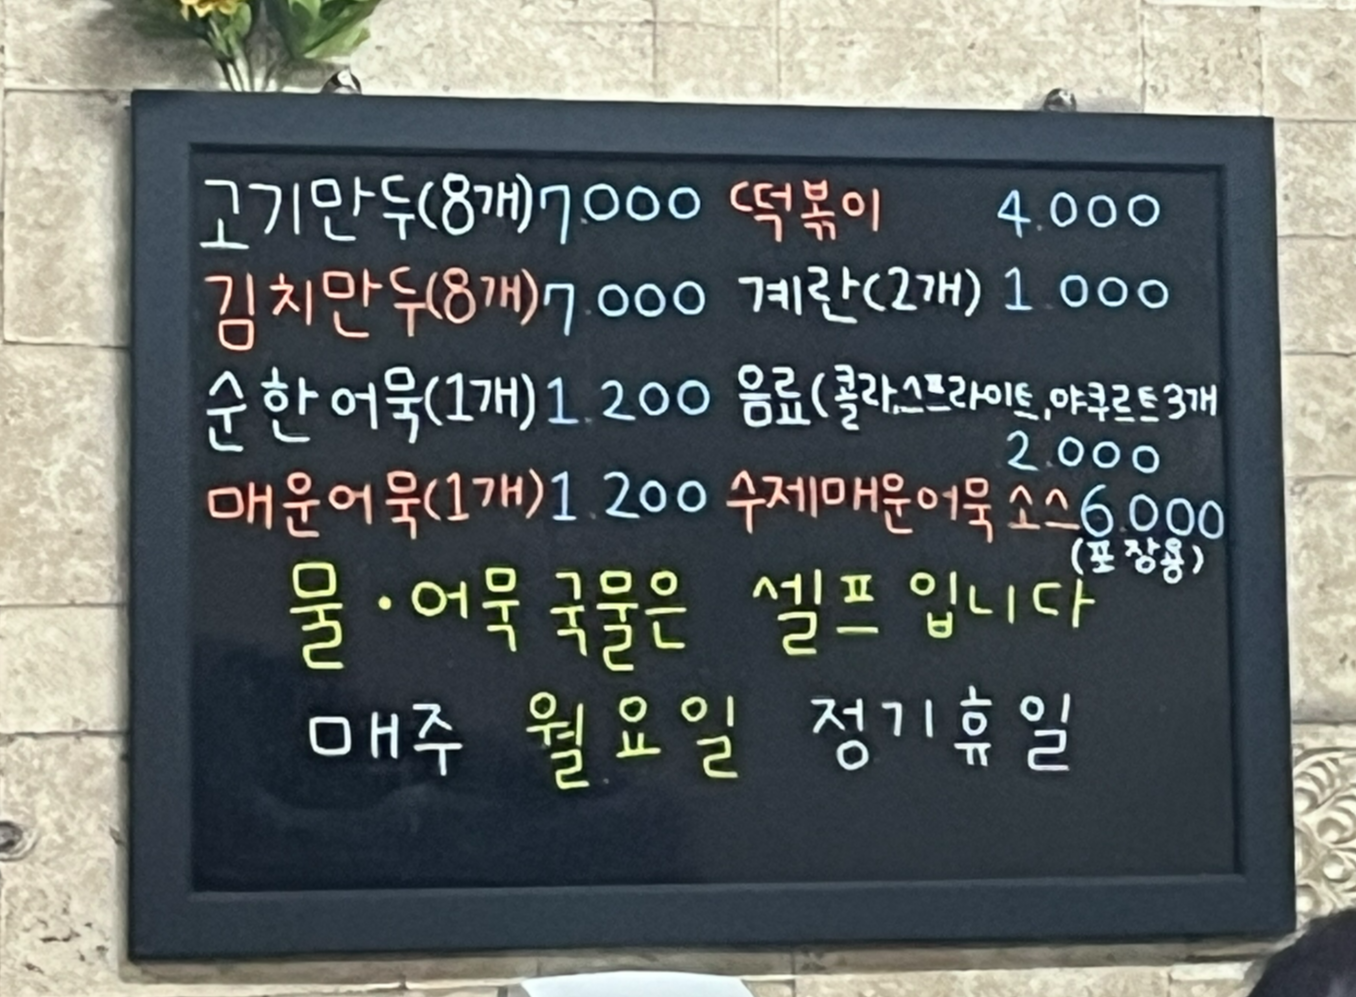 고기만두(8개) 7.000 떡볶이 4.000
김치만두(8개) 7.000 계란(2개) 1.000
순한어묵(1개) 1.200 음료(콜라,스프라이트,야쿠르트3개
2.000
매운어묵(1개) 1.200 수제매운어묵소스 6.000
(포장용)
물·어묵 국물은 셀프 입니다
매주 월요일 정기휴일